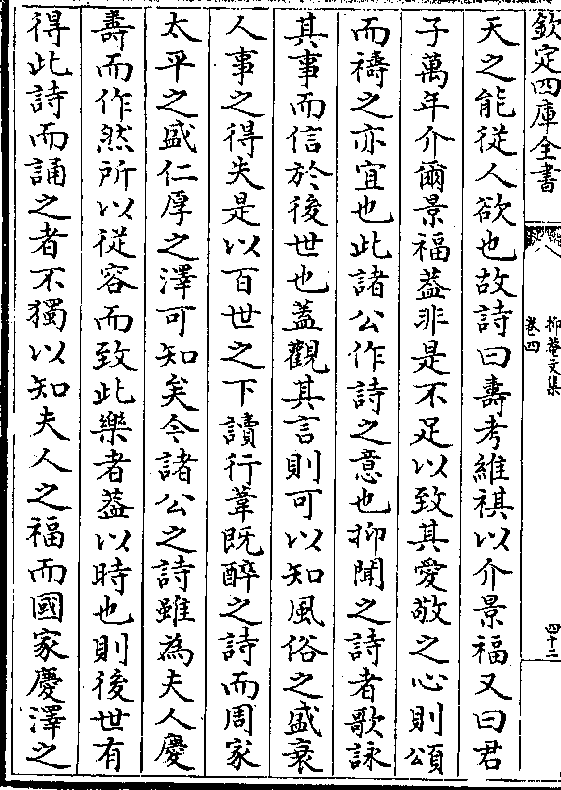 欽定四庫全書
抑菴文集
卷四
四十二
天之能從人欲也故詩曰壽考維祺以介景福又曰君
子萬年介爾景福葢非是不足以致其愛敬之心則頌
而禱之亦宜也此諸公作詩之意也抑聞之詩者歌詠
其事而信於後世也葢觀其言則可以知風俗之盛衰
人事之得失是以百世之下讀行葦既醉之詩而周家
太平之盛仁厚之澤可知矣今諸公之詩雖為夫人慶
壽而作然所以從容而致此樂者葢以時也則後世有
得此詩而誦之者不獨以知夫人之福而國家慶澤之